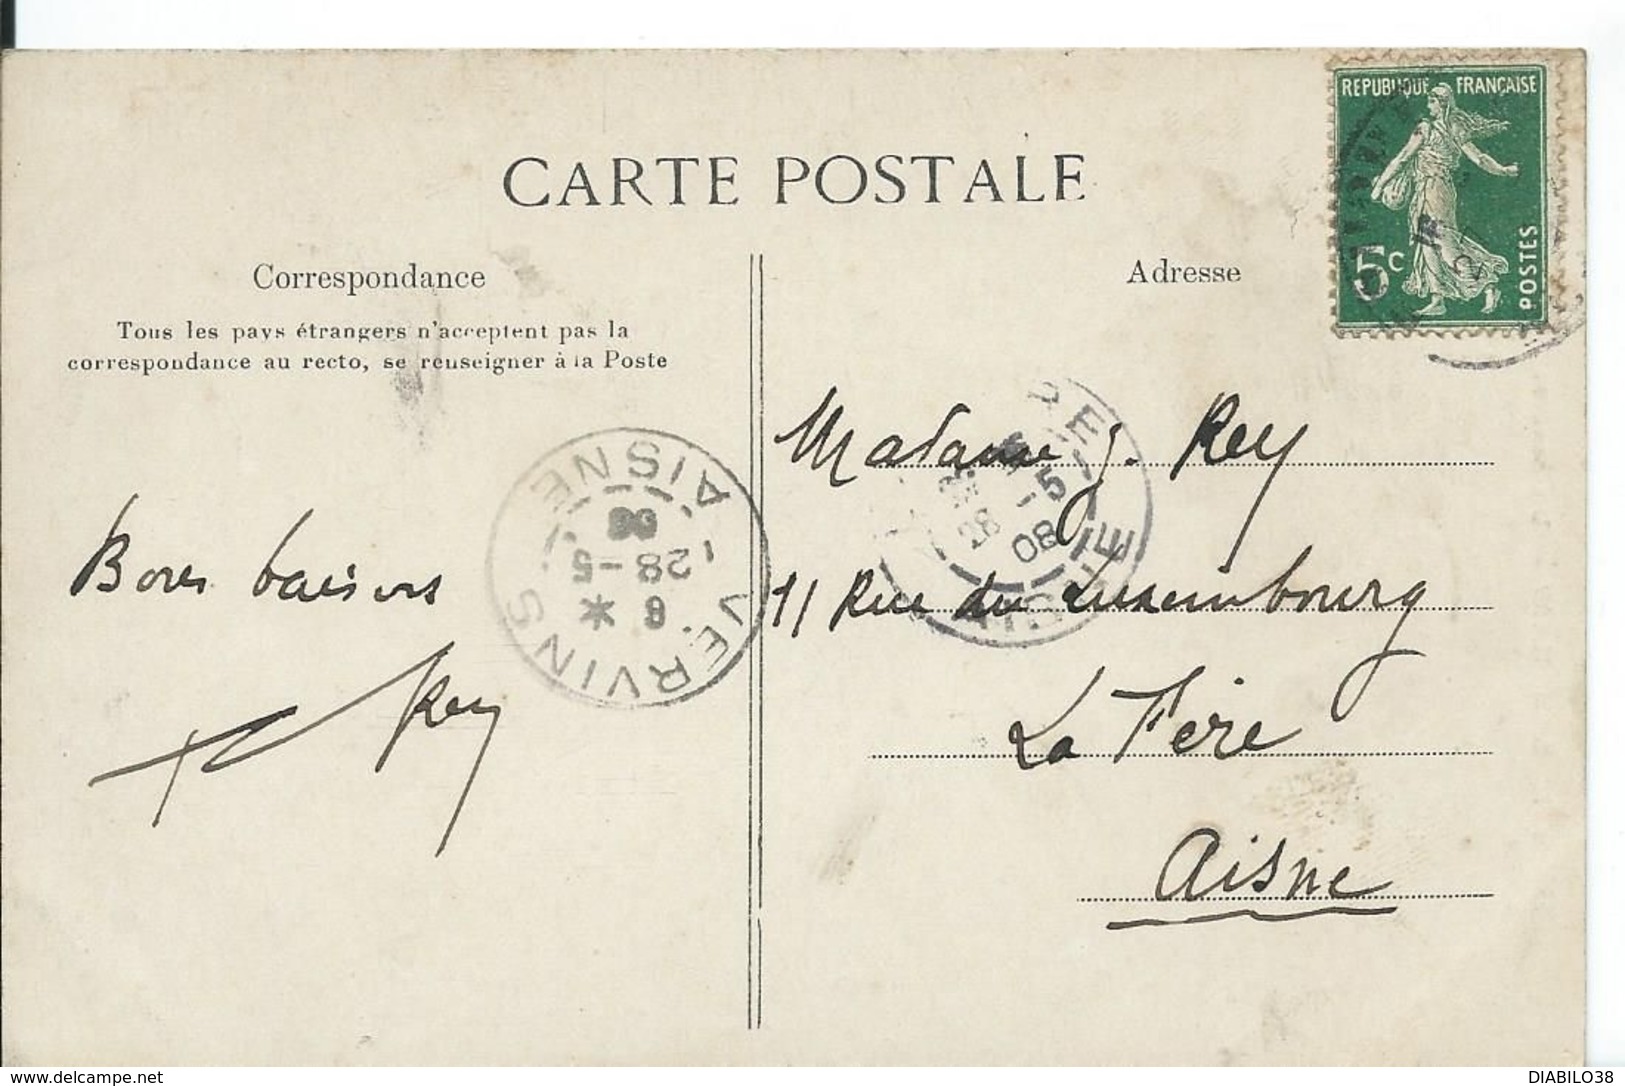 CARTE POSTALE
REPUBLIQUE FRANÇAISE
5c
POSTES
Correspondance
Tous les pays étrangers n'acceptent pas la
correspondance au recto, se renseigner à la Poste
Adresse
Bons baisers
Rey
VERVINS
8 *
28-5
08
AISNE
Madame J. Rey
11 Rue du Luxembourg
La Fère
Aisne
28 -5
08
AISNE
www.delcampe.net
DIABILO38